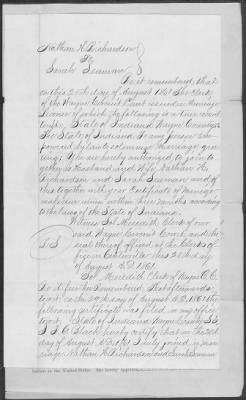 Nathan H. Richardson
To
Sarah Seaman
Be it remembered, That
on this 28th day of August 1861 The Clerk
of the Wayne Circuit Court issued a Marriage
License of which the following is a true record
towit, State of Indiana Wayne County SS
The State of Indiana To any person em-
powered by law to solemnize Marriage gree-
ting: You are hereby authorized to join to-
gether as Husband and Wife Nathan H.
Richardson and Sarah Seaman and of
this together with your Certificate of marriage
make due return within three months according
to the laws of the State of Indiana.
Witness Sol Meredith Clerk of our
said Wayne Circuit Court and the
L S
seal thereof affixed at the Clerks of-
fice in Centerville This 28th day
of August A.D. 1861.
Sol. Meredith Clerk of Wayne C. C.
Be it further Remembered That afterwards
towit on the day of August A.D. 1861 the
following certificate was filed in my office
towit, State of Indiana Wayne County SS
I Black hereby certify that on The 28th
day of August A.D. 1861 I duly joined in mar-
riage Nathan H Richardson and Sarah Seaman